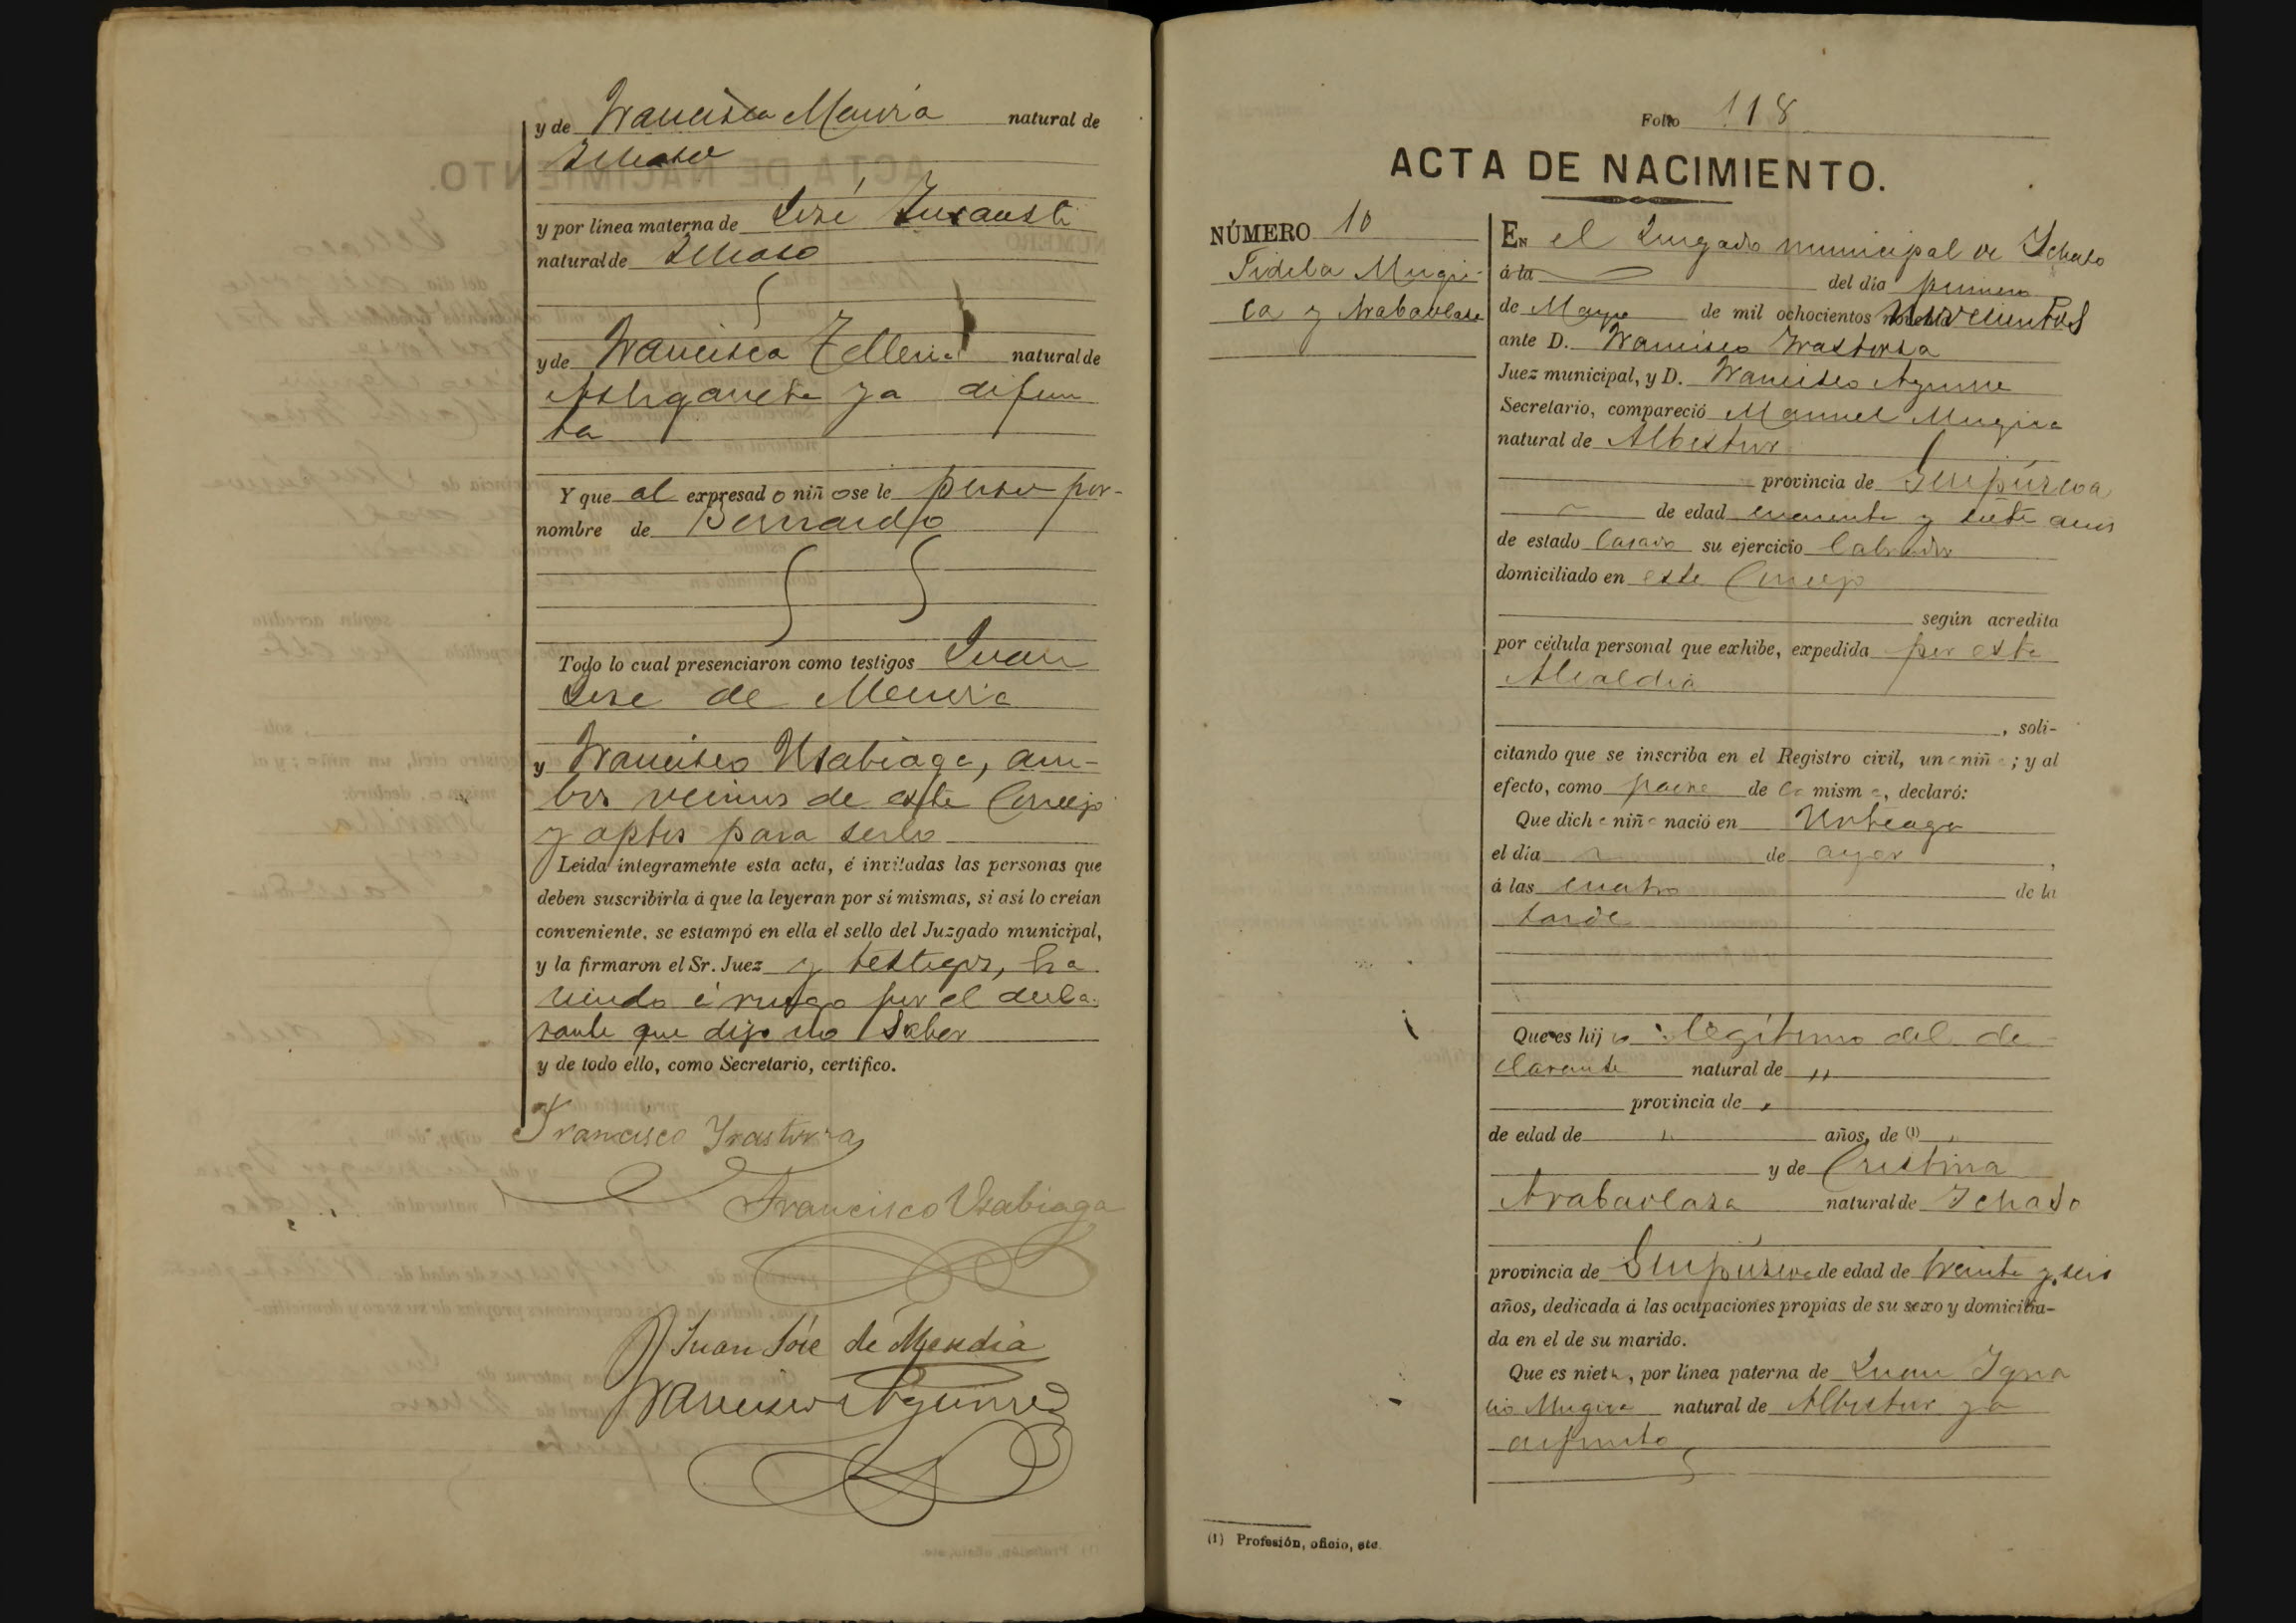 y de Francisca Mendia natural de
Ichaso
y por línea materna de José Insausti
natural de Ichaso
y de Francisca Telleria natural de
Astigarreta ya difun
ta
Y que al expresado niño se le puso por
nombre de Bernardo
Todo lo cual presenciaron como testigos Juan
José de Mendia
y Francisco Usabiaga, am-
bos vecinos de este Concejo
y aptos para serlo
Leída íntegramente esta acta, é invitadas las personas que
deben suscribirla á que la leyeran por sí mismas, si así lo creían
conveniente, se estampó en ella el sello del Juzgado municipal,
y la firmaron el Sr. Juez y testigos, ha
ciendo á ruego por el decla-
rante que dijo no saber
y de todo ello, como Secretario, certifico.
Francisco Yrastorza
Francisco Usabiaga
Juan José de Mendia
Francisco Aguirre
Folio 118
ACTA DE NACIMIENTO.
NÚMERO 10
Fidela Mugi-
ca y Arabaolaza
En el Juzgado municipal de Ichaso
á la del día primero
de Mayo de mil ochocientos novecientos
ante D. Francisco Yrastorza
Juez municipal, y D. Francisco Aguirre
Secretario, compareció Manuel Mugica
natural de Albistur
provincia de Guipúzcoa
de edad cuarenta y siete años
de estado Casado su ejercicio labrador
domiciliado en este Concejo
según acredita
por cédula personal que exhibe, expedida por esta
Alcaldia
, soli-
citando que se inscriba en el Registro civil, una niña; y al
efecto, como padre de la misma, declaró:
Que dicha niña nació en Urteaga
el día de ayer,
á las cuatro de la
tarde
Que es hija legítima del de
clarante natural de "
provincia de "
de edad de " años, de (1) "
y de Cristina
Arabaolaza natural de Ichaso
provincia de Guipúzcoa de edad de treinta y seis
años, dedicada á las ocupaciones propias de su sexo y domicilia-
da en el de su marido.
Que es nieta, por línea paterna de Juan Igna
cio Mugica natural de Albistur ya
difunto
(1) Profesión, oficio, etc.